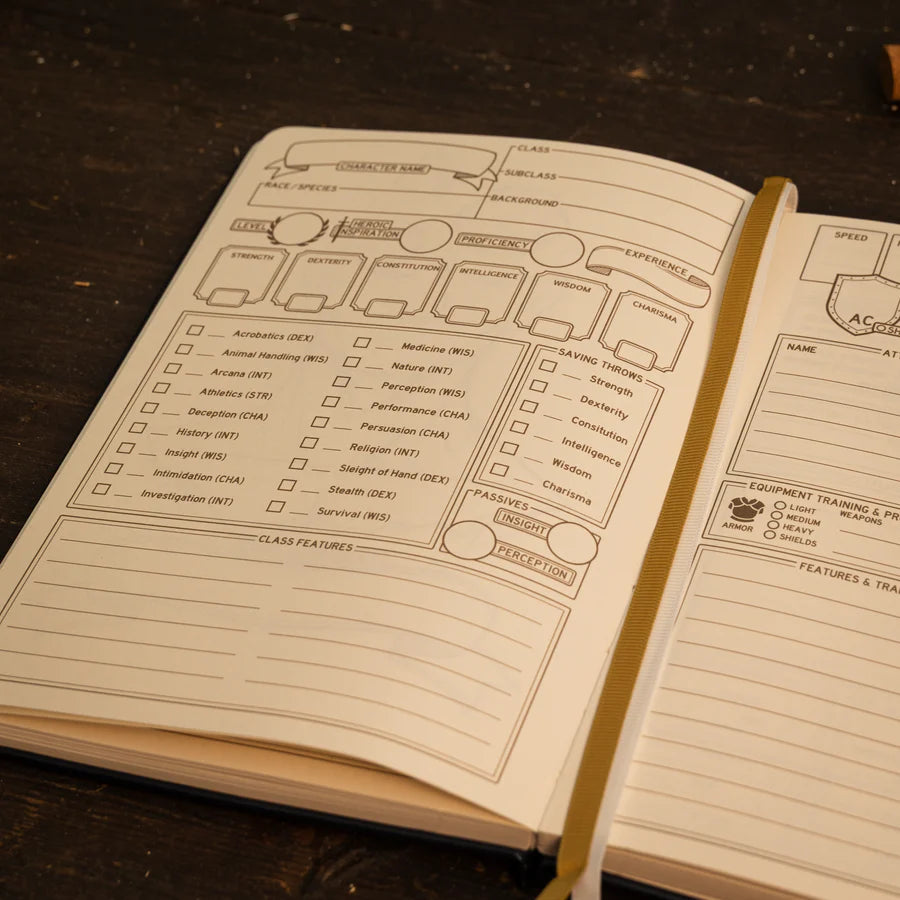 CHARACTER NAME
RACE/SPECIES
CLASS
SUBCLASS
BACKGROUND
LEVEL
HEROIC
INSPIRATION
PROFICIENCY
EXPERIENCE
STRENGTH
DEXTERITY
CONSTITUTION
INTELLIGENCE
WISDOM
CHARISMA
Acrobatics (DEX)
Animal Handling (WIS)
Arcana (INT)
Athletics (STR)
Deception (CHA)
History (INT)
Insight (WIS)
Intimidation (CHA)
Investigation (INT)
Medicine (WIS)
Nature (INT)
Perception (WIS)
Performance (CHA)
Persuasion (CHA)
Religion (INT)
Sleight of Hand (DEX)
Stealth (DEX)
Survival (WIS)
SAVING THROWS
Strength
Dexterity
Consitution
Intelligence
Wisdom
Charisma
PASSIVES
INSIGHT
PERCEPTION
CLASS FEATURES
SPEED
AC
NAME
EQUIPMENT TRAINING &
ARMOR
LIGHT
MEDIUM
HEAVY
SHIELDS
WEAPONS
FEATURES &